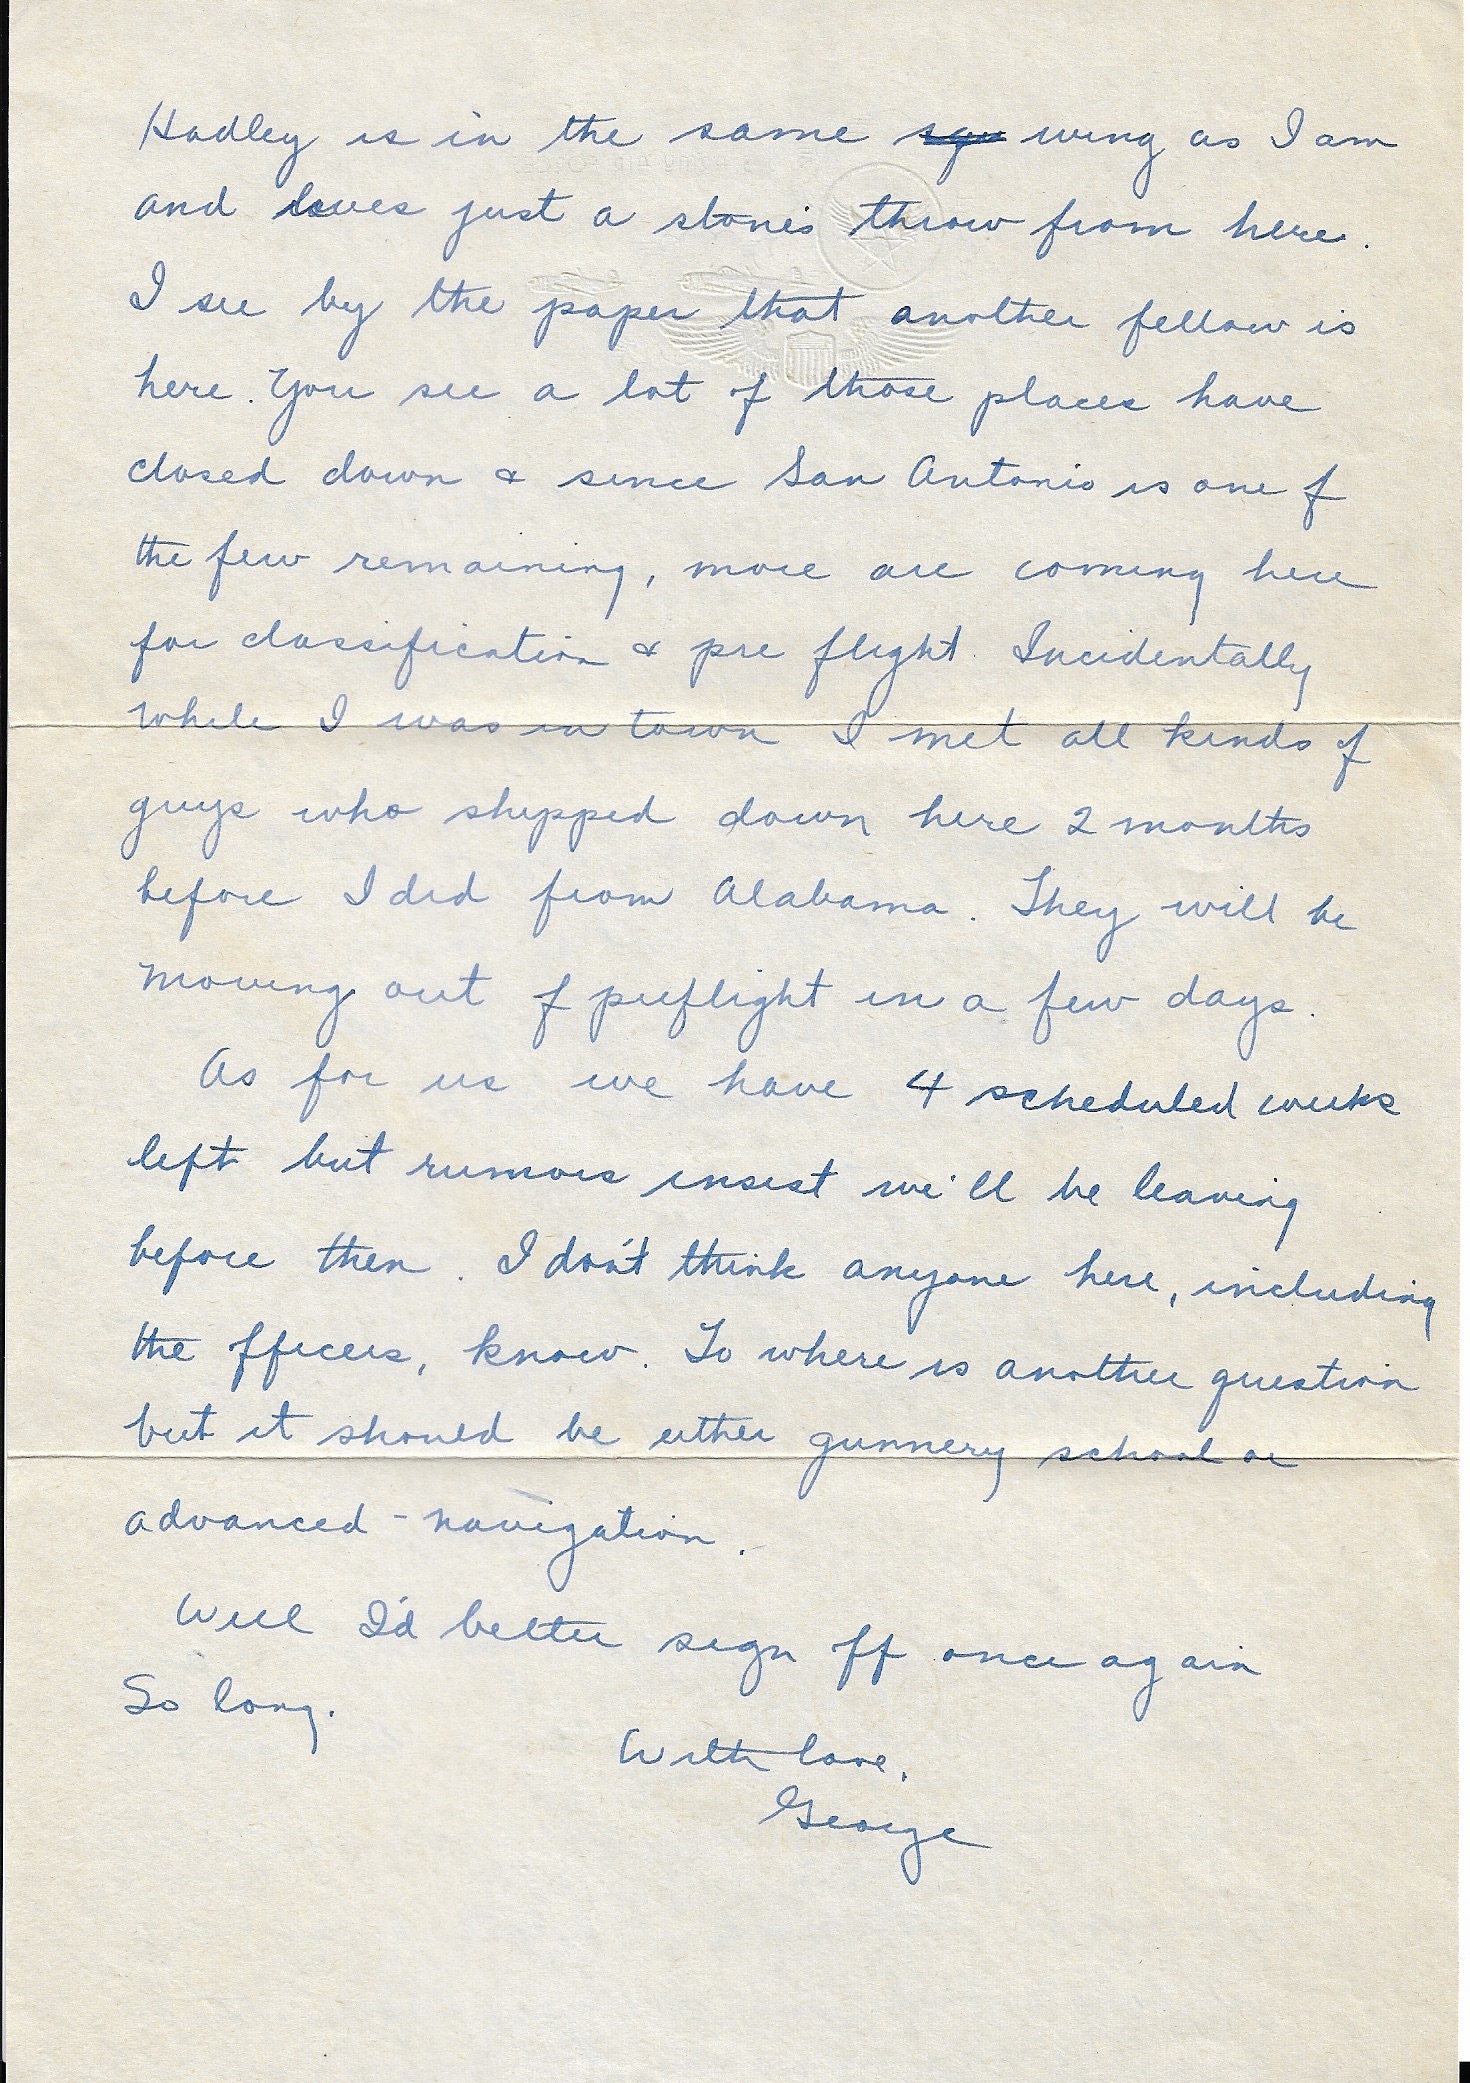 Hadley is in the same squ wing as I am
and lives just a stone's throw from here.
I see by the paper that another fellow is
here. You see a lot of those places have
closed down & since San Antonio is one of
the few remaining, more are coming here
for classification & pre flight. Incidentally
while I was in town I met all kinds of
guys who shipped down here 2 months
before I did from Alabama. They will be
moving out of preflight in a few days.
As for us we have 4 scheduled weeks
left but rumors insist we'll be leaving
before then. I don't think anyone here, including
the officers, know. To where is another question
but it should be either gunnery school or
advanced - navigation.
Well I'd better sign off once again
So long.
With love,
George